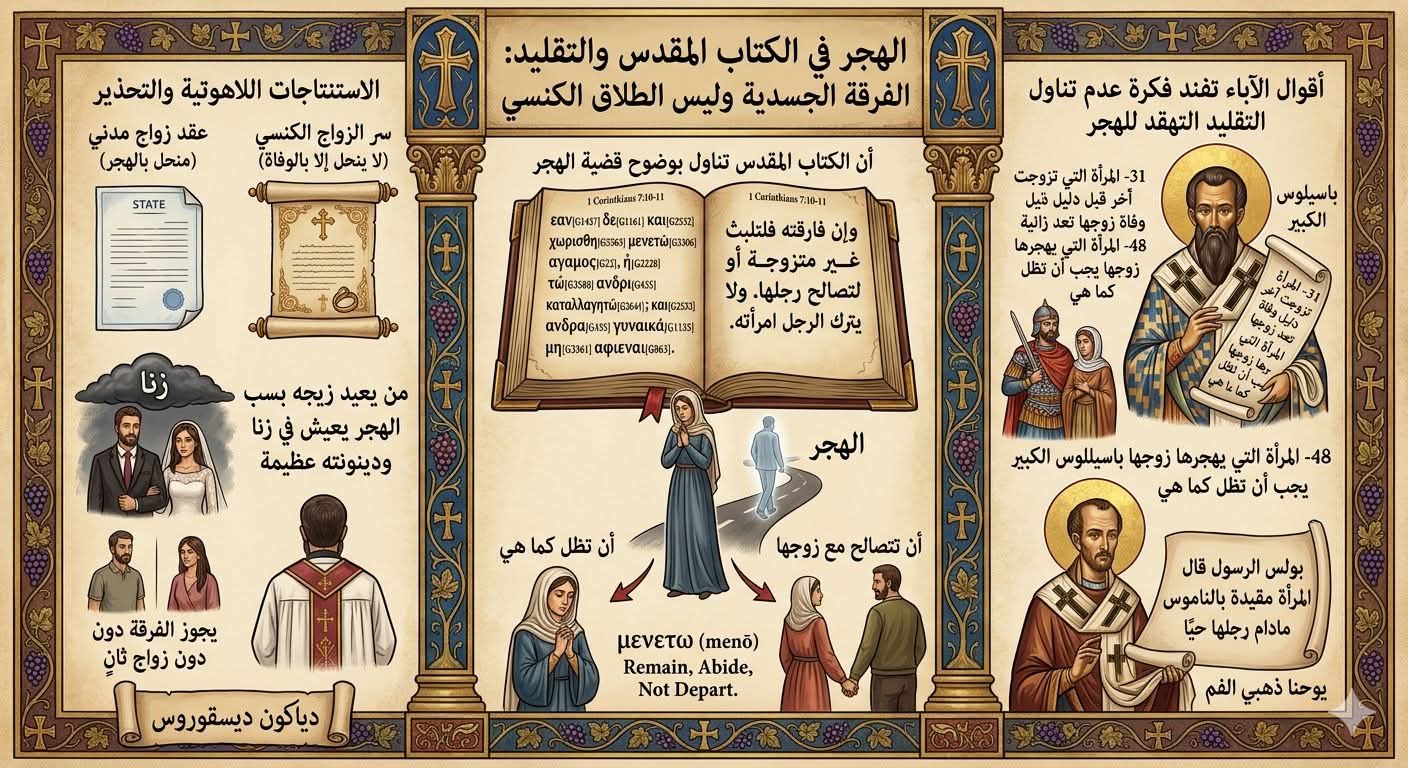 الهجر في الكتاب المقدس والتقليد:
الفرقة الجسدية وليس الطلاق الكنسي
أقوال الآباء تفند فكرة عدم تناول
التقليد التهقد للهجر
31- المرأة التي تزوجت
أخر قبل دليل
وفاة زوجها تعد زانية
48- المرأة التي يهجرها
زوجها يجب أن تظل
كما هي
باسيلوس
الكبير
31- المرأة
تزوجت أخر
دليل وفاة
تعد زوجها
المرأة التي
زوجها
يجب أن تظل
كما هي
48- المرأة التي يهجرها زوجها باسيللوس الكبير
يجب أن تظل كما هي
بولس الرسول قال
المرأة مقيدة بالناموس
مادام رجلها حيًا
يوحنا ذهبي الفم
أن الكتاب المقدس تناول بوضوح قضية الهجر
1 Corintkians 7:10-11
εαν[G1437] δε[G1161] και[G2532]
χωρισθη[G5563] μενετώ[G3306]
αγαμος[G22], ή[G2228]
τώ[G3588] ανδρι[G435]
καταλλαγητώ[G3644]; και[G2533]
ανδρα[G435] γυναικά[G1135]
μη[G3361] αφιεναι[G863].
1 Cariatkians 7:10-11
وإن فارقته فلتلبث
غير متزوجة أو
لتصالح رجلها. ولا
يترك الرجل امرأته.
الهجر
أن تظل كما هي
أن تتصالح مع زوجها
μενετω (menō)
Remain, Abide,
Not Depart.
الاستنتاجات اللاهوتية والتحذير
سر الزواج الكنسي
(لا ينحل إلا بالوفاة)
عقد زواج مدني
(منحل بالهجر)
STATE
زنا
من يعيد زيجه بسب
الهجر يعيش في زنا
ودينونته عظيمة
يجوز الفرقة دون
دون زواج ثانٍ
دياكون ديسقوروس